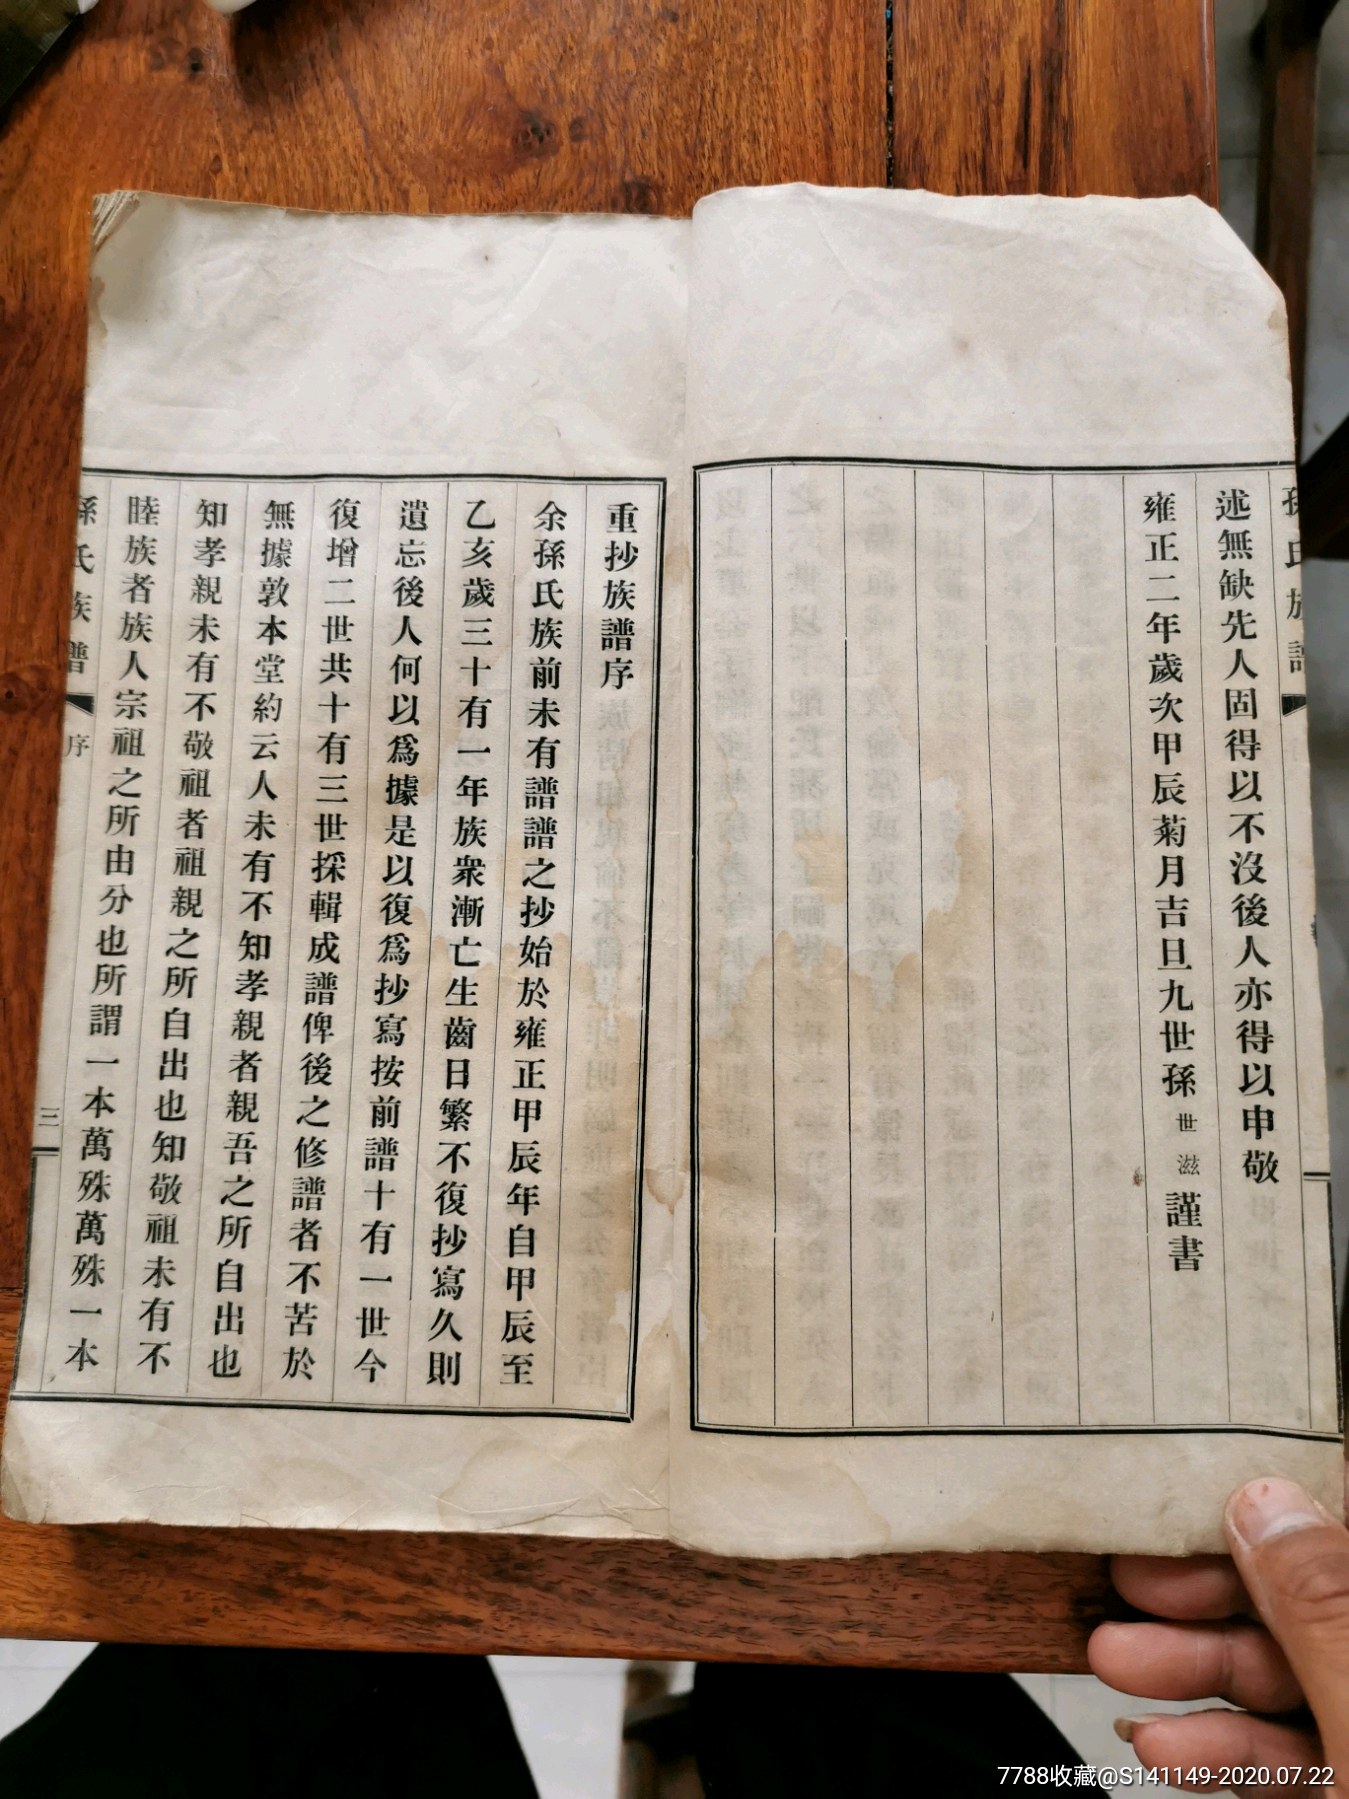 孫氏族譜
述無缺先人固得以不沒後人亦得以申敬
雍正二年歲次甲辰菊月吉旦九世孫世滋謹書
重抄族譜序
余孫氏族前未有譜譜之抄始於雍正甲辰年自甲辰至
乙亥歲三十有一年族衆漸亡生齒日繁不復抄寫久則
遺忘後人何以爲據是以復爲抄寫按前譜十有一世今
復增二世共十有三世採輯成譜俾後之修譜者不苦於
無據敦本堂約云人未有不知孝親者親吾之所自出也
知孝親未有不敬祖者祖親之所自出也知敬祖未有不
睦族者族人宗祖之所由分也所謂一本萬殊萬殊一本
孫氏族譜 序 三
7788收藏@S141149-2020.07.22